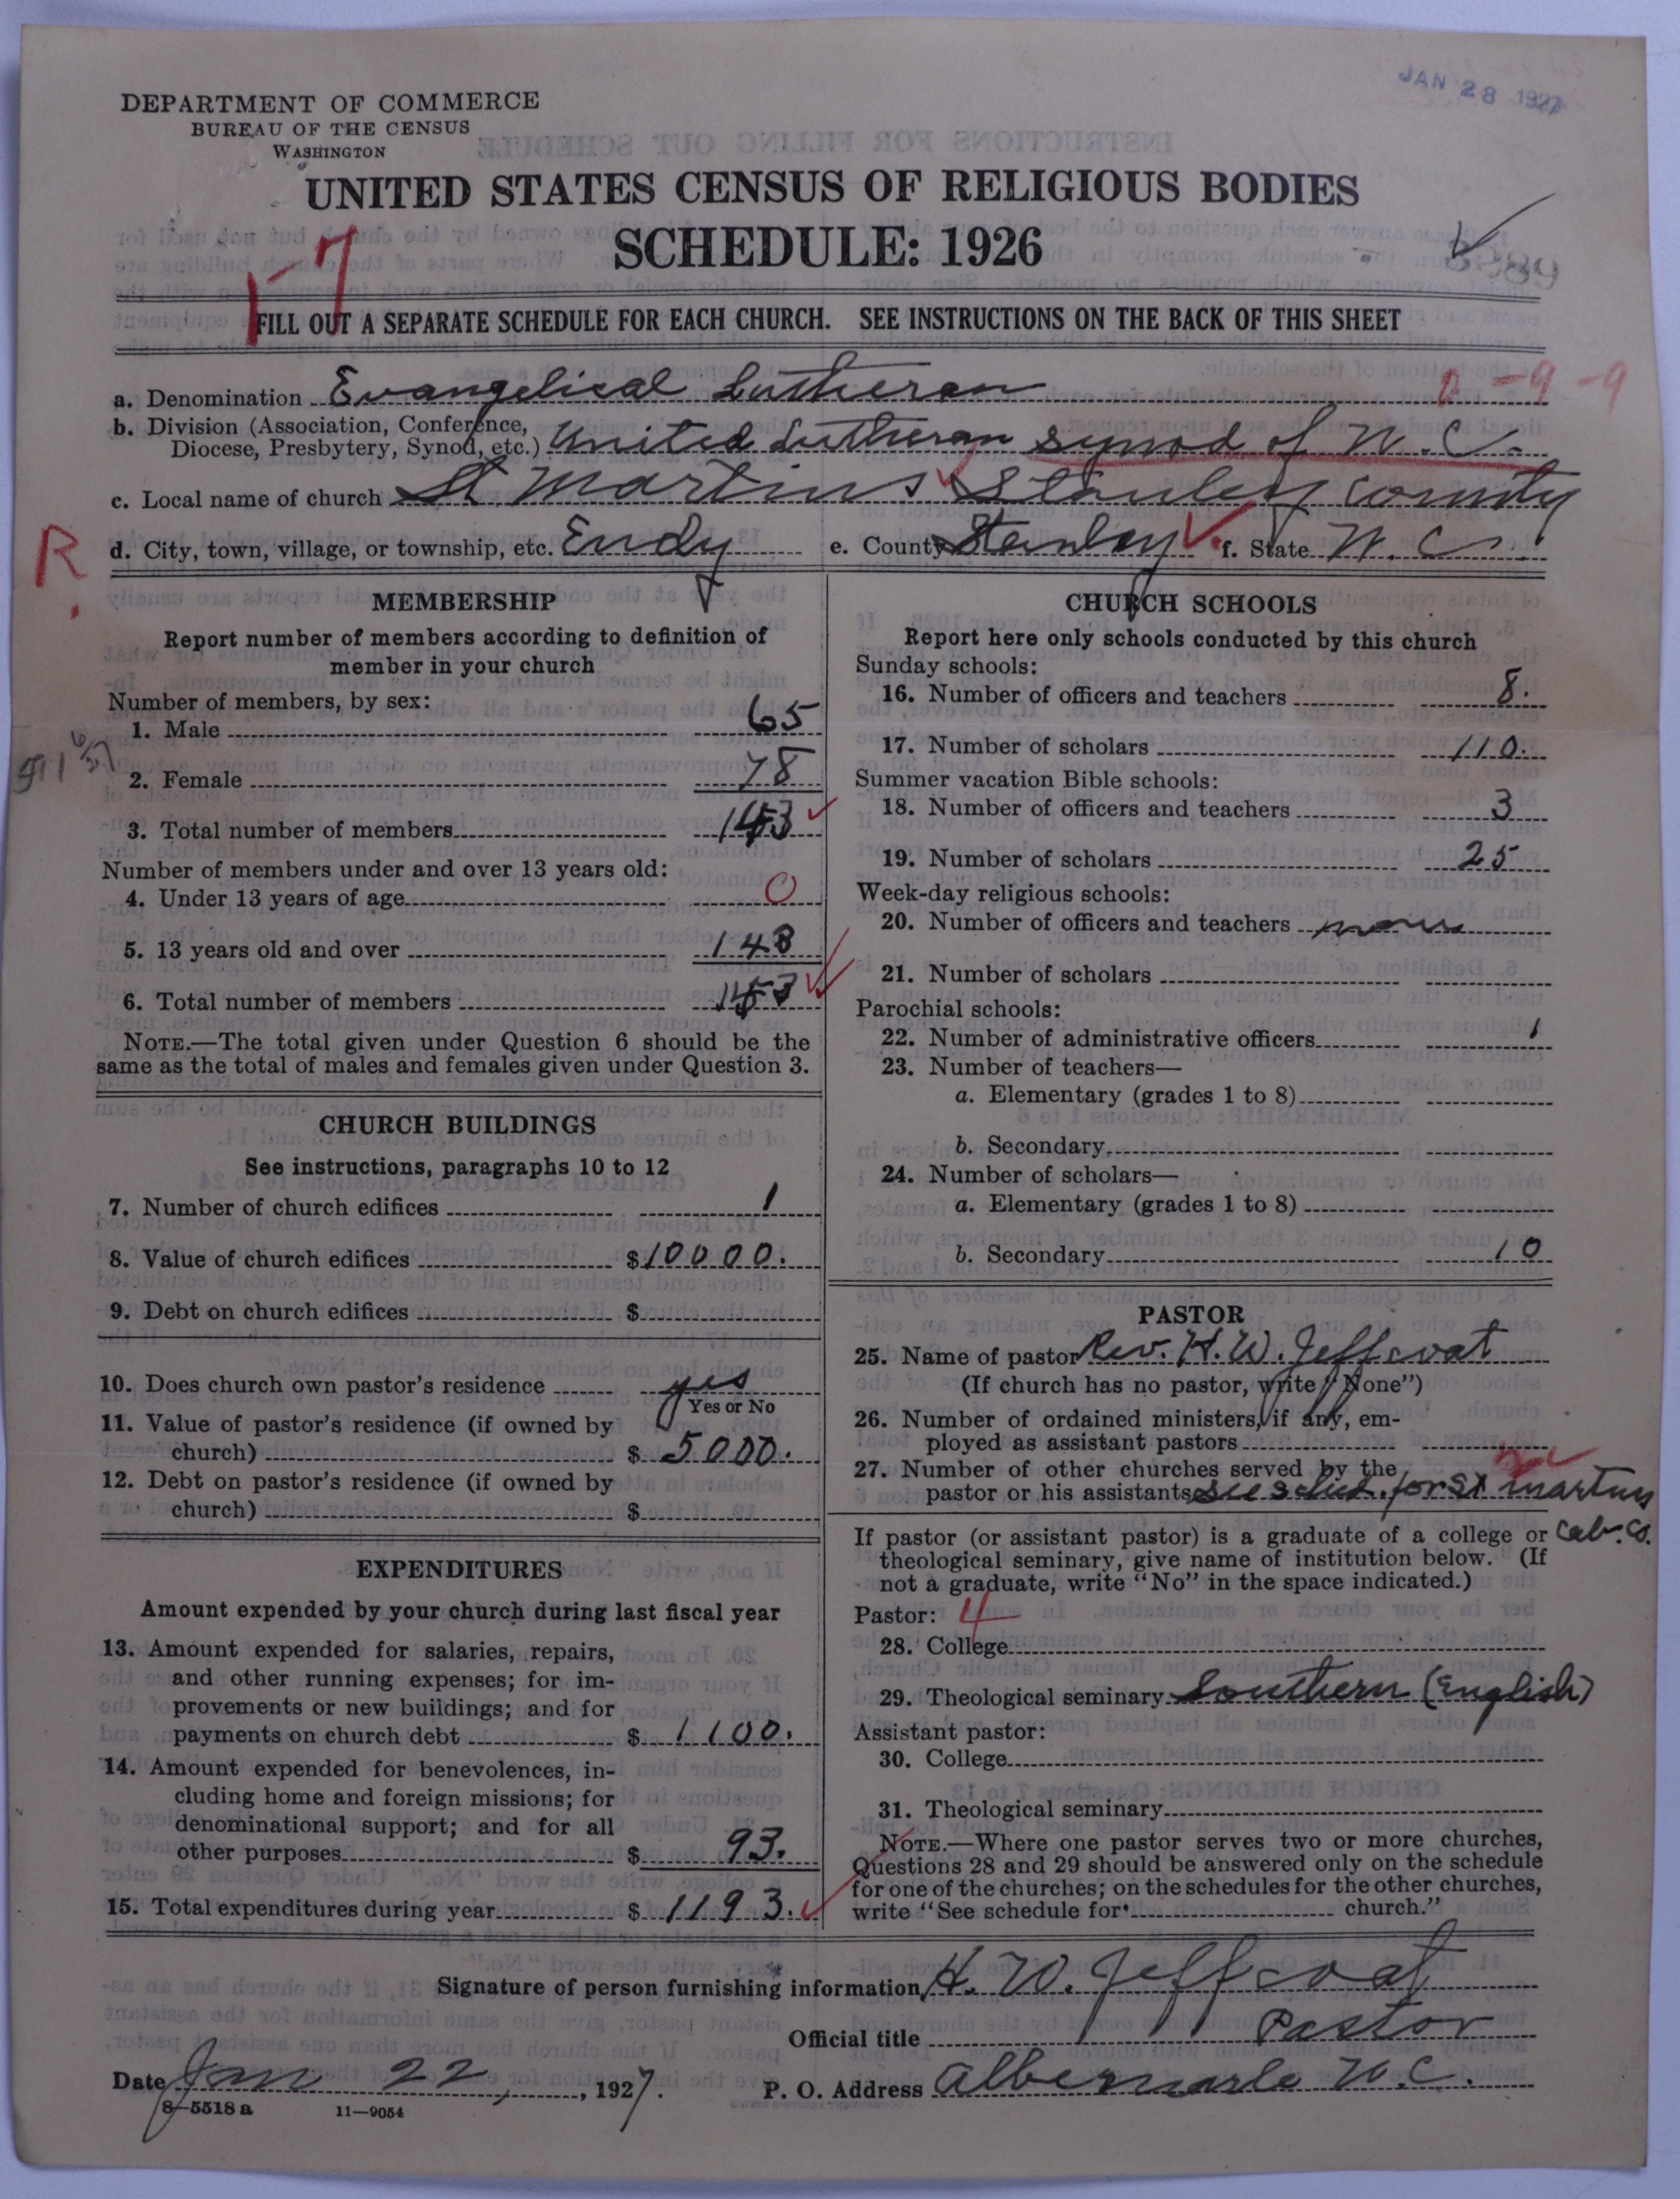 JAN 28 1927
DEPARTMENT OF COMMERCE
BUREAU OF THE CENSUS
WASHINGTON
UNITED STATES CENSUS OF RELIGIOUS BODIES
SCHEDULE: 1926
1-7
FILL OUT A SEPARATE SCHEDULE FOR EACH CHURCH. SEE INSTRUCTIONS ON THE BACK OF THIS SHEET
a. Denomination Evangelical Lutheran 0-9-9
b. Division (Association, Conference, Diocese, Presbytery, Synod, etc.) United Lutheran Synod of N.C.
c. Local name of church St Martins Stanley county
R.
d. City, town, village, or township, etc. Endy e. County Stanley f. State N.C.
MEMBERSHIP
Report number of members according to definition of
member in your church
Number of members, by sex:
1. Male 65
2. Female 78
3. Total number of members 143
Number of members under and over 13 years old:
4. Under 13 years of age 0
5. 13 years old and over 143
6. Total number of members 143
NOTE.—The total given under Question 6 should be the
same as the total of males and females given under Question 3.
CHURCH BUILDINGS
See instructions, paragraphs 10 to 12
7. Number of church edifices 1
8. Value of church edifices $10000.
9. Debt on church edifices $
10. Does church own pastor's residence yes
Yes or No
11. Value of pastor's residence (if owned by
church) $ 5000.
12. Debt on pastor's residence (if owned by
church) $
EXPENDITURES
Amount expended by your church during last fiscal year
13. Amount expended for salaries, repairs,
and other running expenses; for im-
provements or new buildings; and for
payments on church debt $ 1100.
14. Amount expended for benevolences, in-
cluding home and foreign missions; for
denominational support; and for all
other purposes $ 93.
15. Total expenditures during year $ 1193.
CHURCH SCHOOLS
Report here only schools conducted by this church
Sunday schools:
16. Number of officers and teachers 8.
17. Number of scholars 110.
Summer vacation Bible schools:
18. Number of officers and teachers 3
19. Number of scholars 25
Week-day religious schools:
20. Number of officers and teachers none
21. Number of scholars
Parochial schools:
22. Number of administrative officers 1
23. Number of teachers—
a. Elementary (grades 1 to 8)
b. Secondary
24. Number of scholars—
a. Elementary (grades 1 to 8)
b. Secondary 10
PASTOR
25. Name of pastor Rev. H. W. Jeffcoat
(If church has no pastor, write "None")
26. Number of ordained ministers, if any, em-
ployed as assistant pastors
27. Number of other churches served by the
pastor or his assistants see sched. for St Martins
Cab. Co.
If pastor (or assistant pastor) is a graduate of a college or
theological seminary, give name of institution below. (If
not a graduate, write "No" in the space indicated.)
Pastor: 4
28. College
29. Theological seminary Southern (English)
Assistant pastor:
30. College
31. Theological seminary
NOTE.—Where one pastor serves two or more churches,
Questions 28 and 29 should be answered only on the schedule
for one of the churches; on the schedules for the other churches,
write "See schedule for church."
Signature of person furnishing information H. W. Jeffcoat
Official title Pastor
Date Jan 22, 1927.
P. O. Address Albemarle N.C.
8-5518 a 11-9054